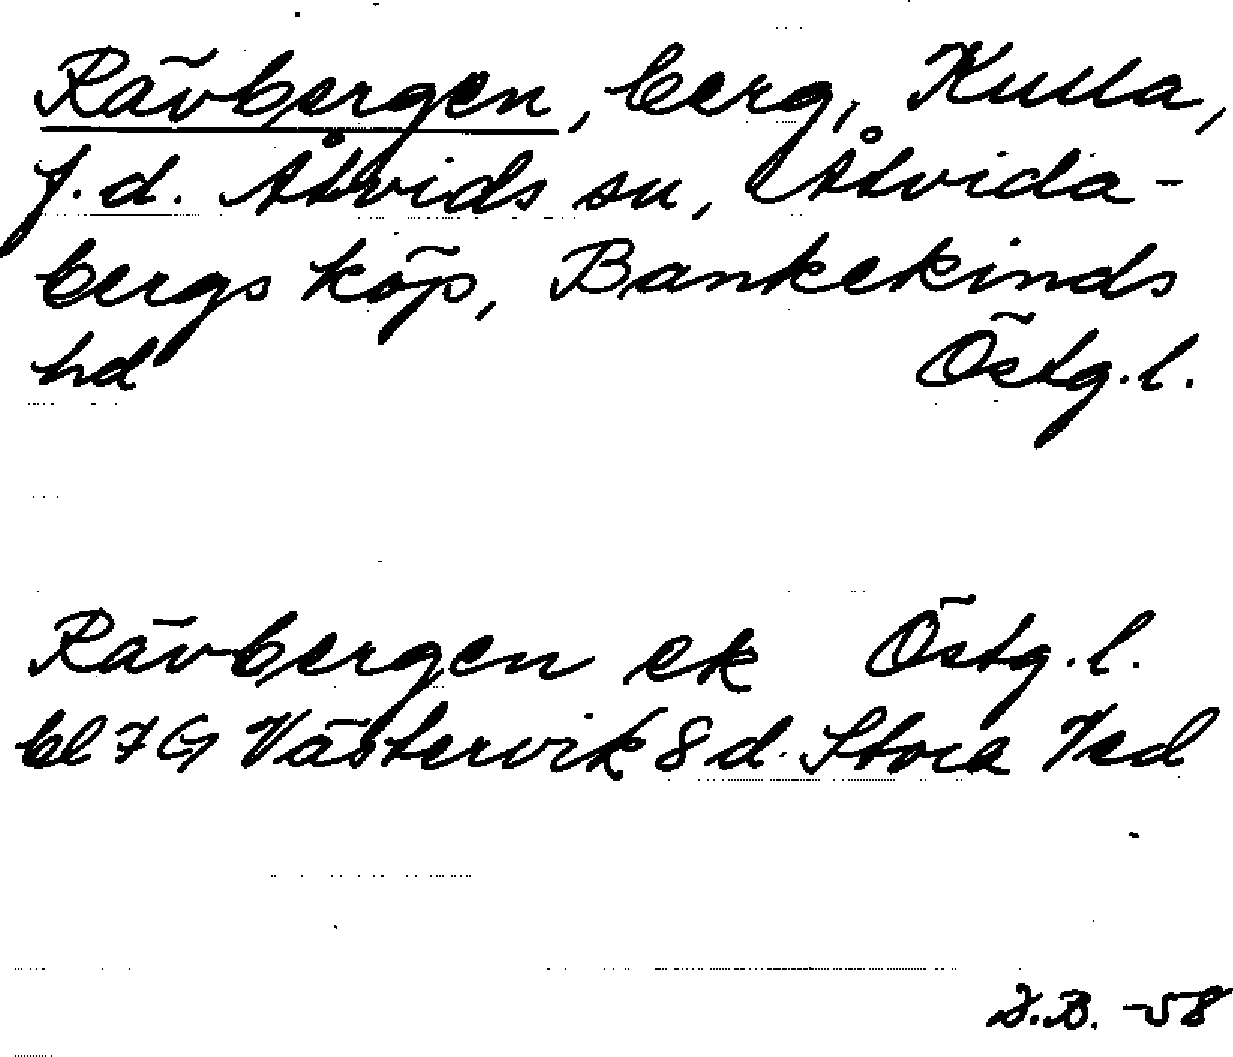 Rävbergen, berg, Kulla,
f.d. Åtvids sn, Åtvida-
bergs köp, Bankekinds
hd Östg.l.
Rävbergen ek Östg.l.
bl 7 G Västervik 8 d. Stora Ved
J.B. -58